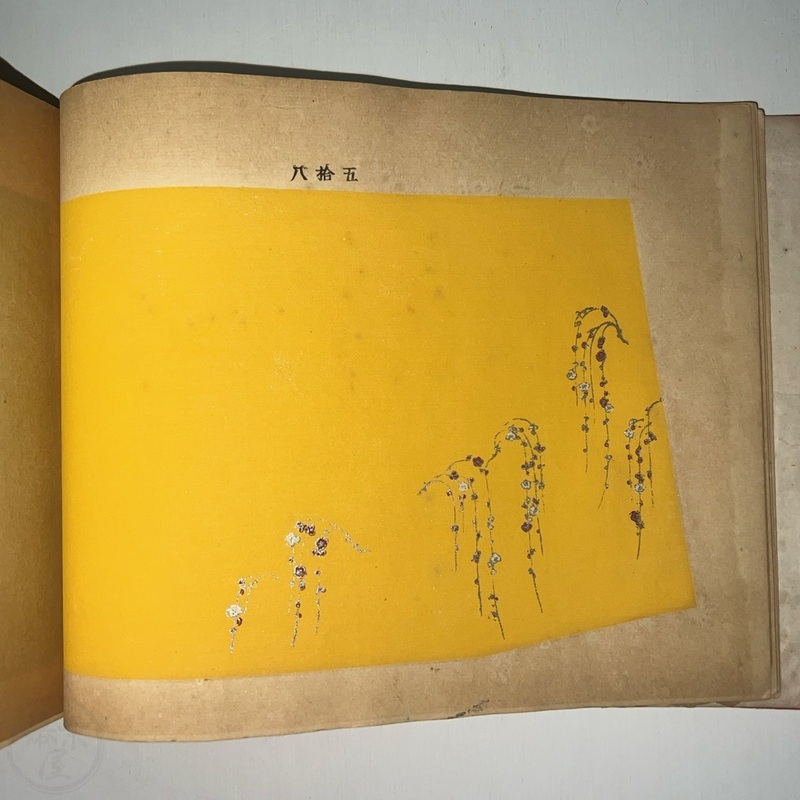 五拾八